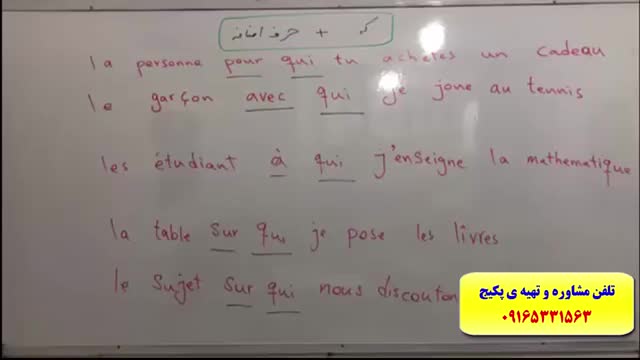 که + حرف اضافه
la personne pour qui tu achètes un cadeau
le garçon avec qui je joue au tennis
les étudiant à qui j'enseigne la mathematique
la table sur qui je pose les livres
le sujet sur qui nous discouton
تلفن مشاوره و تهیه ی پکیج
۰۹۱۶۵۳۳۱۵۶۳